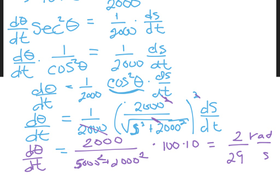 2000
dθ/dt sec²θ = 1/2000 ds/dt
dθ/dt · 1/cos²θ = 1/2000 ds/dt
dθ/dt = 1/2000 cos²θ · ds/dt
dθ/dt = 1/2000 (2000/√(s²+2000²))² ds/dt
dθ/dt = 2000/(5000²+2000²) · 100·10 = 2/29 rad/s